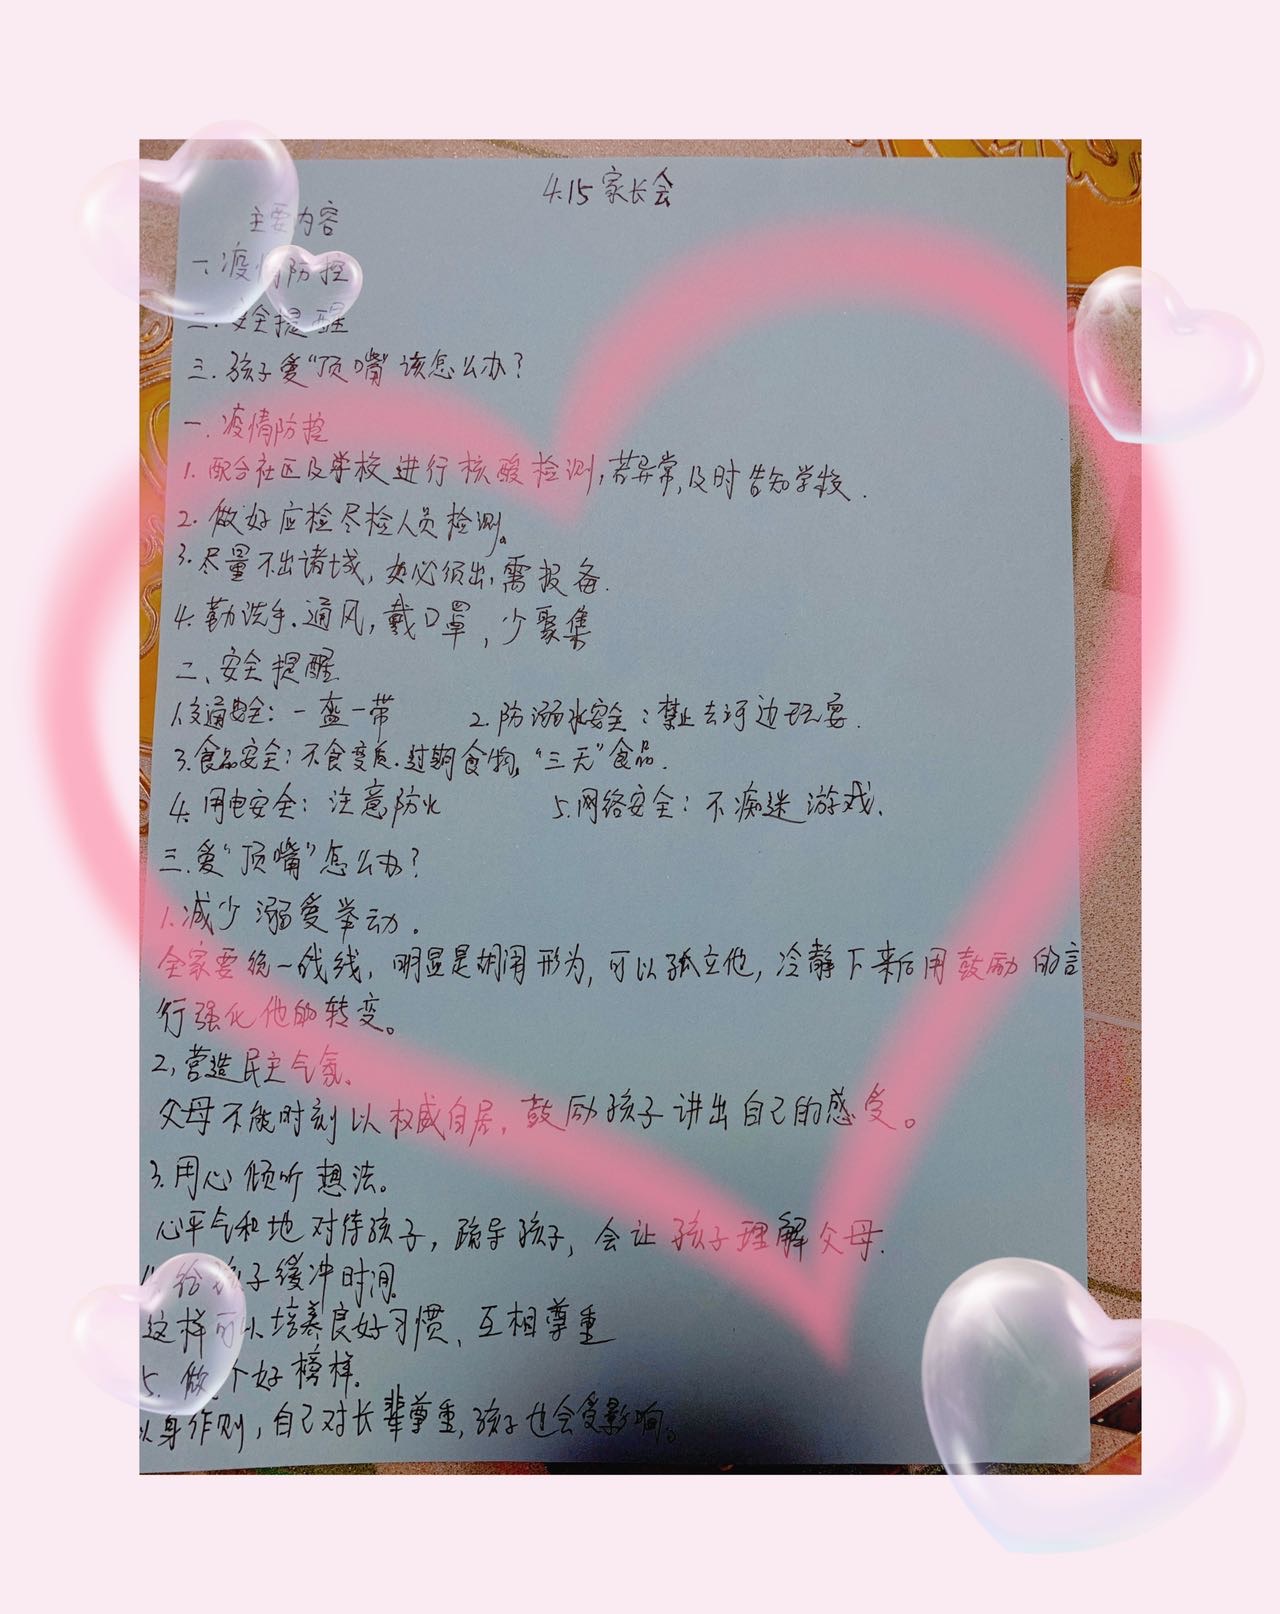 4.15 家长会
主要内容
一.疫情防控
二.安全提醒
三.孩子爱“顶嘴”该怎么办?
一.疫情防控
1.配合社区及学校进行核酸检测,若异常,及时告知学校.
2.做好应检尽检人员检测。
3.尽量不出诸城,如必须出,需报备.
4.勤洗手.通风,戴口罩,少聚集
二、安全提醒
1.交通安全:一盔一带 2.防溺水安全:禁止去河边玩耍.
3.食品安全:不食变质.过期食物,“三无”食品.
4.用电安全:注意防火 5.网络安全:不痴迷游戏.
三.爱“顶嘴”怎么办?
1.减少溺爱举动.
全家要统一战线,明显是胡闹形为,可以孤立他,冷静下来后用鼓励的言
行强化他的转变。
2,营造民主气氛.
父母不能时刻以权威自居,鼓励孩子讲出自己的感受。
3.用心倾听想法。
心平气和地对待孩子,疏导孩子,会让孩子理解父母.
给孩子缓冲时间.
这样可以培养良好习惯,互相尊重
5.做个好榜样.
以身作则,自己对长辈尊重,孩子也会受影响。